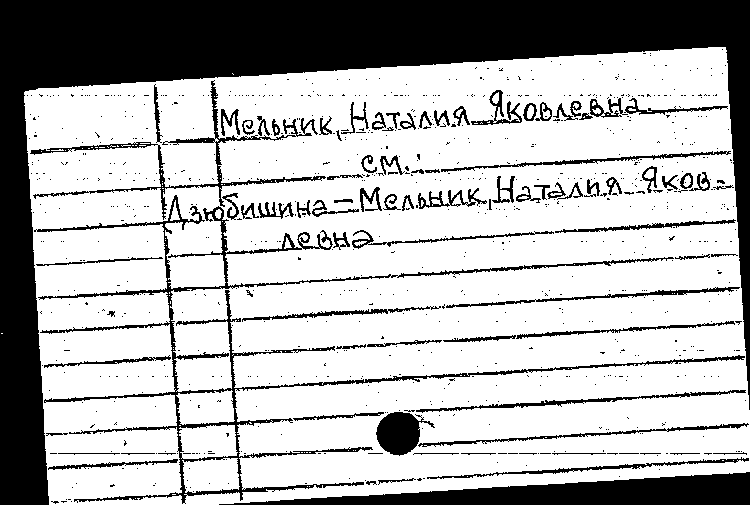 Мельник, Наталия Яковлевна.
см.:
Дзюбишина-Мельник, Наталия Яков-
левна